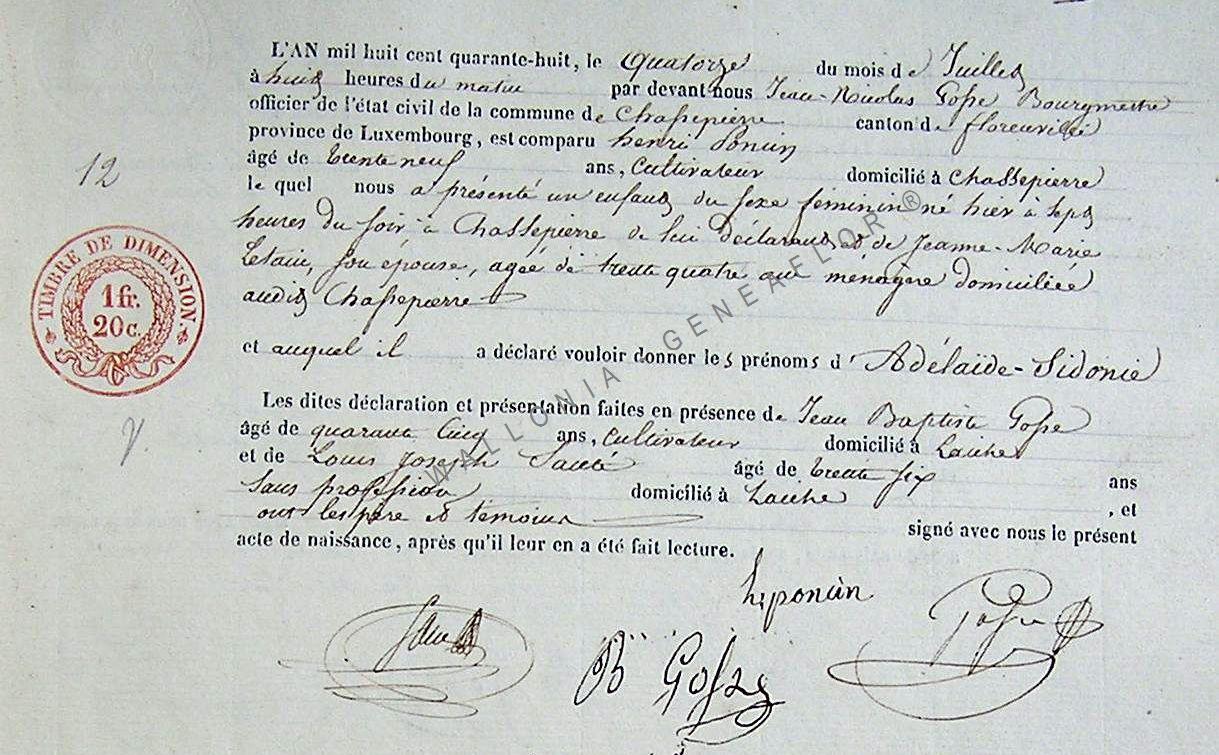 L'AN mil huit cent quarante-huit, le Quatorze du mois de Juillet
à huit heures du matin par devant nous Jean-Nicolas Gofse Bourgmestre
officier de l'état civil de la commune de Chassepierre canton de florenville
province de Luxembourg, est comparu henri Poncin
âgé de trente neuf ans, Cultivateur domicilié à Chassepierre
le quel nous a présenté un enfant du sexe féminin né hier à sept
heures du soir à Chassepierre de lui déclarant et de Jeanne-Marie
son épouse, agée de trente quatre ans ménagère domiciliée
audit Chassepierre
et auquel il a déclaré vouloir donner les prénoms d'Adélaïde-Sidonie
Les dites déclaration et présentation faites en présence de Jean Baptiste Gofse
âgé de quarante Cinq ans, Cultivateur domicilié à Laiche
et de Louis Joseph Sauté âgé de trente six ans
Sans profession domicilié à Laiche, et
ont les père et témoins signé avec nous le présent
acte de naissance, après qu'il leur en a été fait lecture.
12
TIMBRE DE DIMENSION.
1 fr.
20 c.
h. poncin
B Gofse
Gofse
WALLONIA GENEAFLOR ®